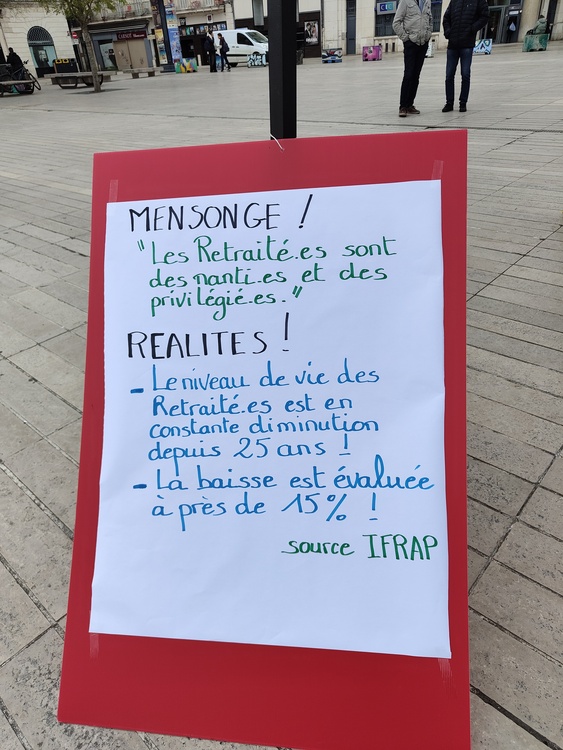 MENSONGE !
"Les Retraité.es sont
des nanti.es et des
privilégié.es."
REALITES !
- Le niveau de vie des
Retraité.es est en
constante diminution
depuis 25 ans !
- La baisse est évaluée
à près de 15% !
source IFRAP